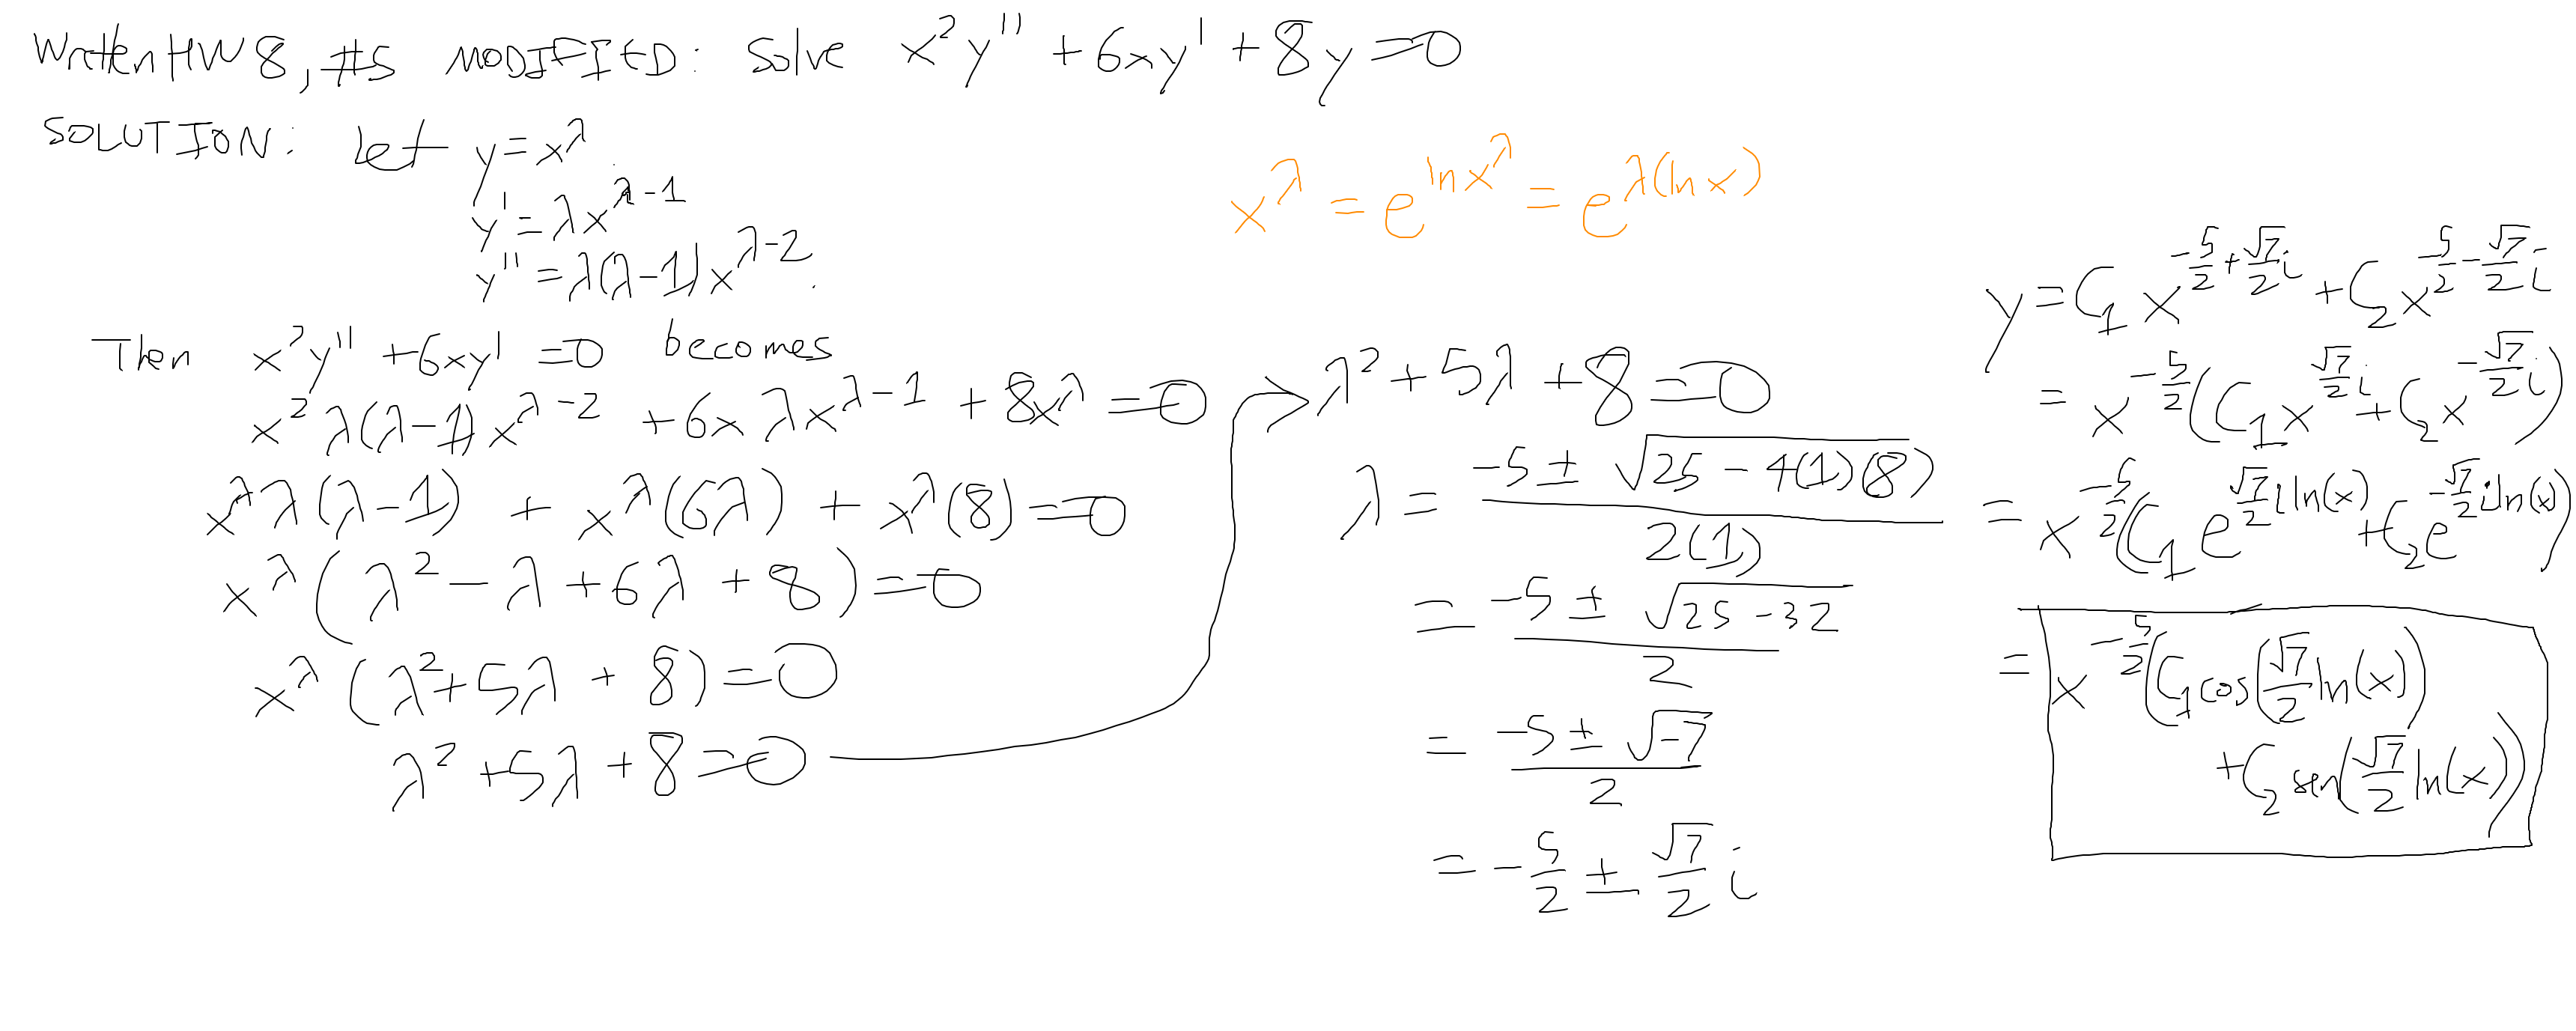 Written HW 8, #5 MODIFIED: Solve x²y'' + 6xy' + 8y = 0
SOLUTION: Let y = x^λ
y' = λx^(λ-1)
y'' = λ(λ-1)x^(λ-2).
Then x²y'' + 6xy' = 0 becomes
x²λ(λ-1)x^(λ-2) + 6xλx^(λ-1) + 8x^λ = 0
x^λ λ(λ-1) + x^λ(6λ) + x^λ(8) = 0
x^λ(λ² - λ + 6λ + 8) = 0
x^λ(λ² + 5λ + 8) = 0
λ² + 5λ + 8 = 0
x^λ = e^(ln x^λ) = e^(λ(ln x))
λ² + 5λ + 8 = 0
λ = (-5 ± √(25 - 4(1)(8)))/(2(1))
= (-5 ± √(25 - 32))/2
= (-5 ± √-7)/2
= -5/2 ± √7/2 i
y = C₁x^(-5/2 + √7/2 i) + C₂x^(-5/2 - √7/2 i)
= x^(-5/2)(C₁x^(√7/2 i) + C₂x^(-√7/2 i))
= x^(-5/2)(C₁e^(√7/2 i ln(x)) + C₂e^(-√7/2 i ln(x)))
= x^(-5/2)(C₁cos(√7/2 ln(x))
+ C₂ sin(√7/2 ln(x)))